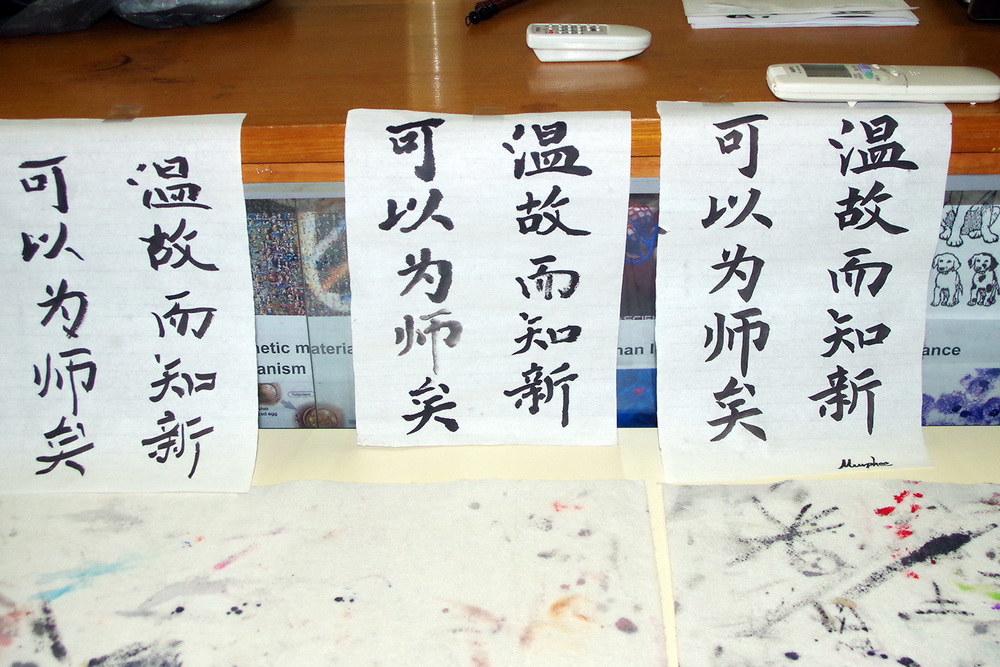 温故而知新
可以为师矣
温故而知新
可以为师矣
温故而知新
可以为师矣
netic materia
anism
man I
ance